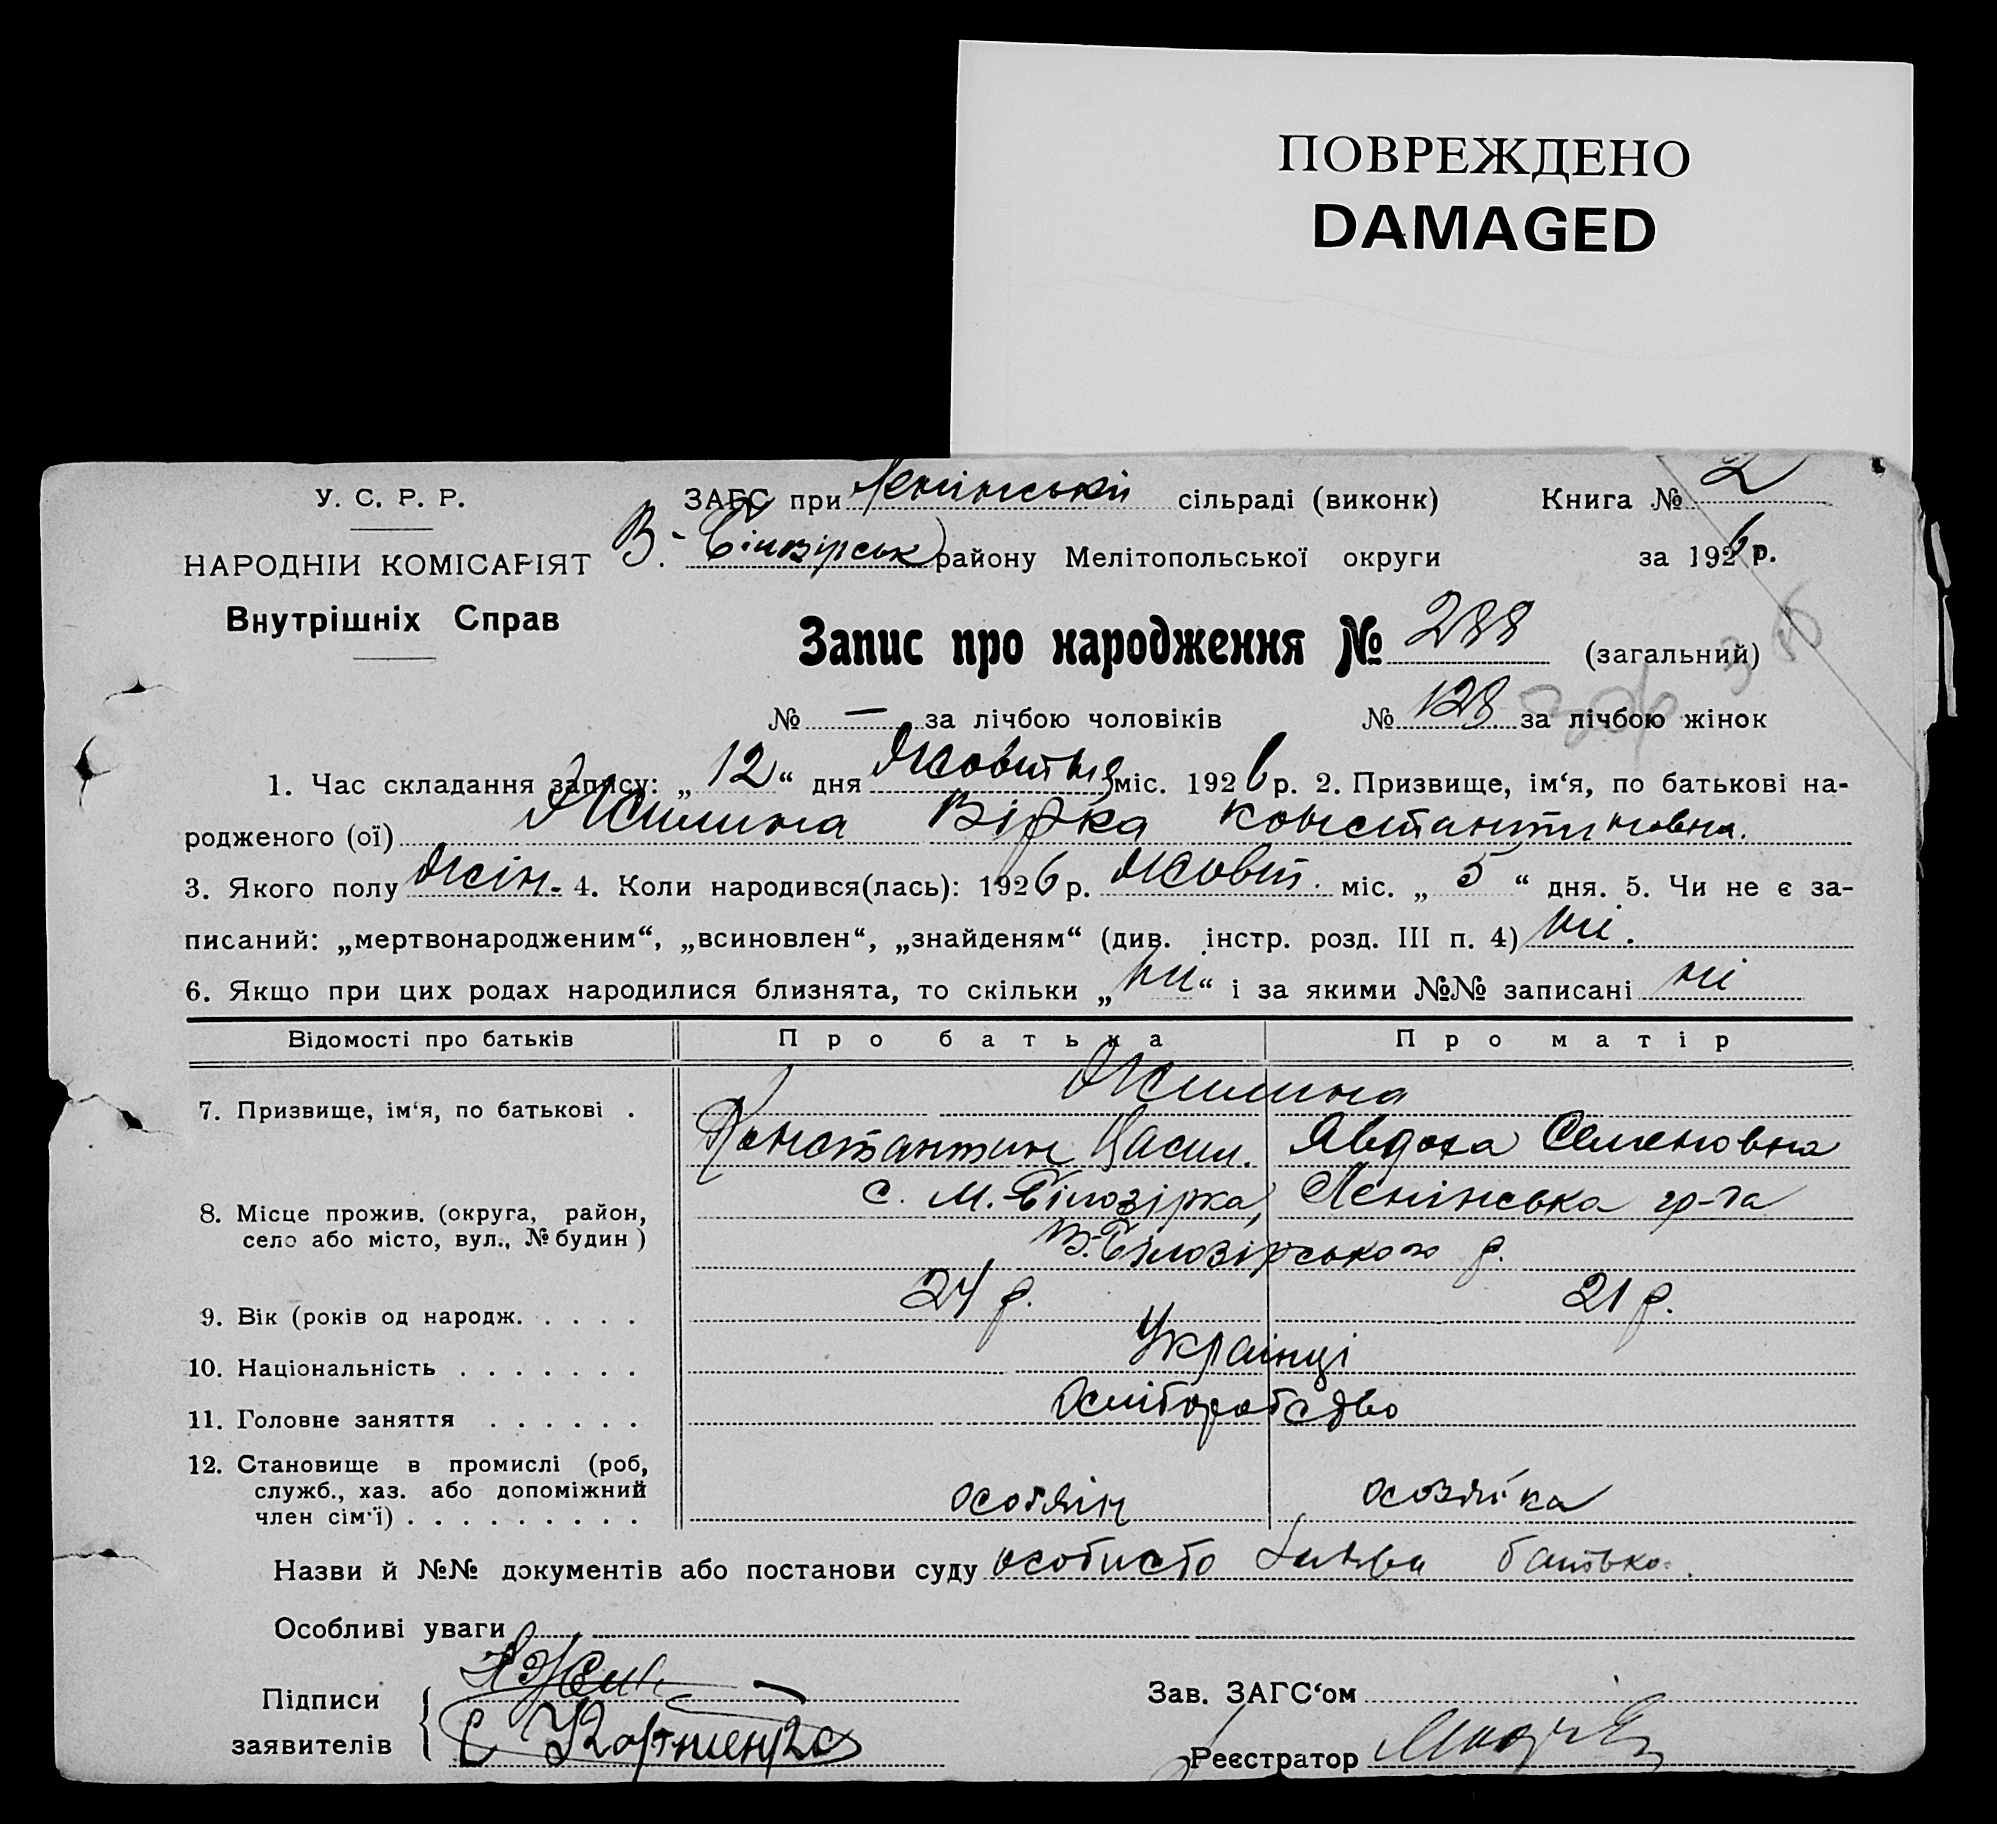 ПОВРЕЖДЕНО
DAMAGED
У. С. Р. Р.
ЗАГС при Ленінській сільраді (виконк) Книга № 2
НАРОДНІЙ КОМІСАРІЯТ В.-Білозірськ району Мелітопольської округи за 1926 р.
Внутрішніх Справ
Запис про народження № 288 (загальний)
№ — за лічбою чоловіків № 128 за лічбою жінок
1. Час складання запису: „ 12 “ дня Жовтня міс. 1926 р. 2. Призвище, ім‘я, по батькові на-
родженого (ої) Жилина Вірка Константиновна.
3. Якого полу жін. 4. Коли народився(лась): 1926 р. Жовт. міс. „ 5 “ дня. 5. Чи не є за-
писаний: „мертвонародженим“, „всиновлен“, „знайденям“ (див. інстр. розд. III п. 4) ні.
6. Якщо при цих родах народилися близнята, то скільки „ ні “ і за якими №№ записані ні
Відомості про батьків Про батька Про матір
Жилина
7. Призвище, ім‘я, по батькові .
Константин Васил. Явдоха Семеновна
с. М. Білозірка, Ленінська
8. Місце прожив. (округа, район,
село або місто, вул., № будин )
В.-Білозірського р.
24 р. 21 р.
9. Вік (років од народж. . . . .
10. Національність . . . . . . . Українці
11. Головне заняття . . . . . . Хліборобство
12. Становище в промислі (роб,
служб., хаз. або допоміжний
член сім‘ї) . . . . . . . . . хозяін хозяйка
Назви й №№ документів або постанови суду особисто заява батька.
Особливі уваги
Підписи
заявителів
Зав. ЗАГС‘ом
Реєстратор